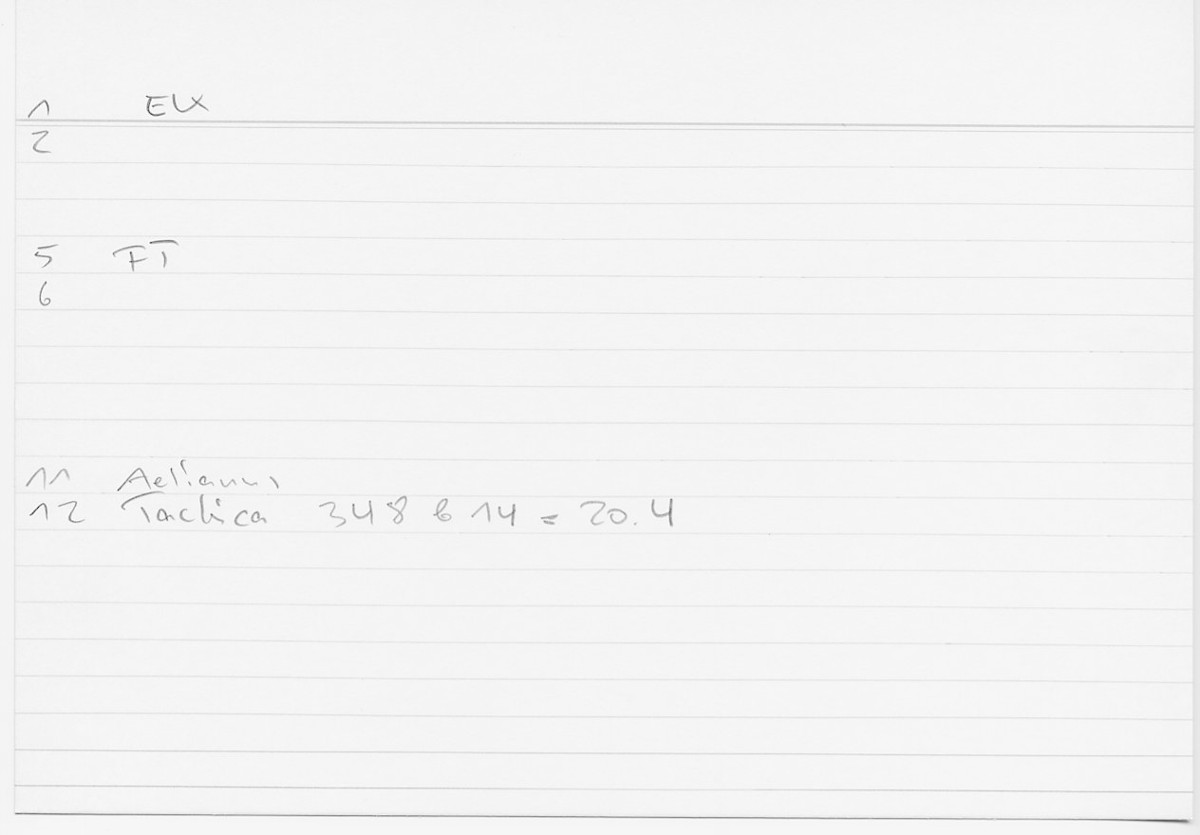 1 EUX
2
5 FT
6
11 Aelianus
12 Tactica 348 b 14 = 20.4